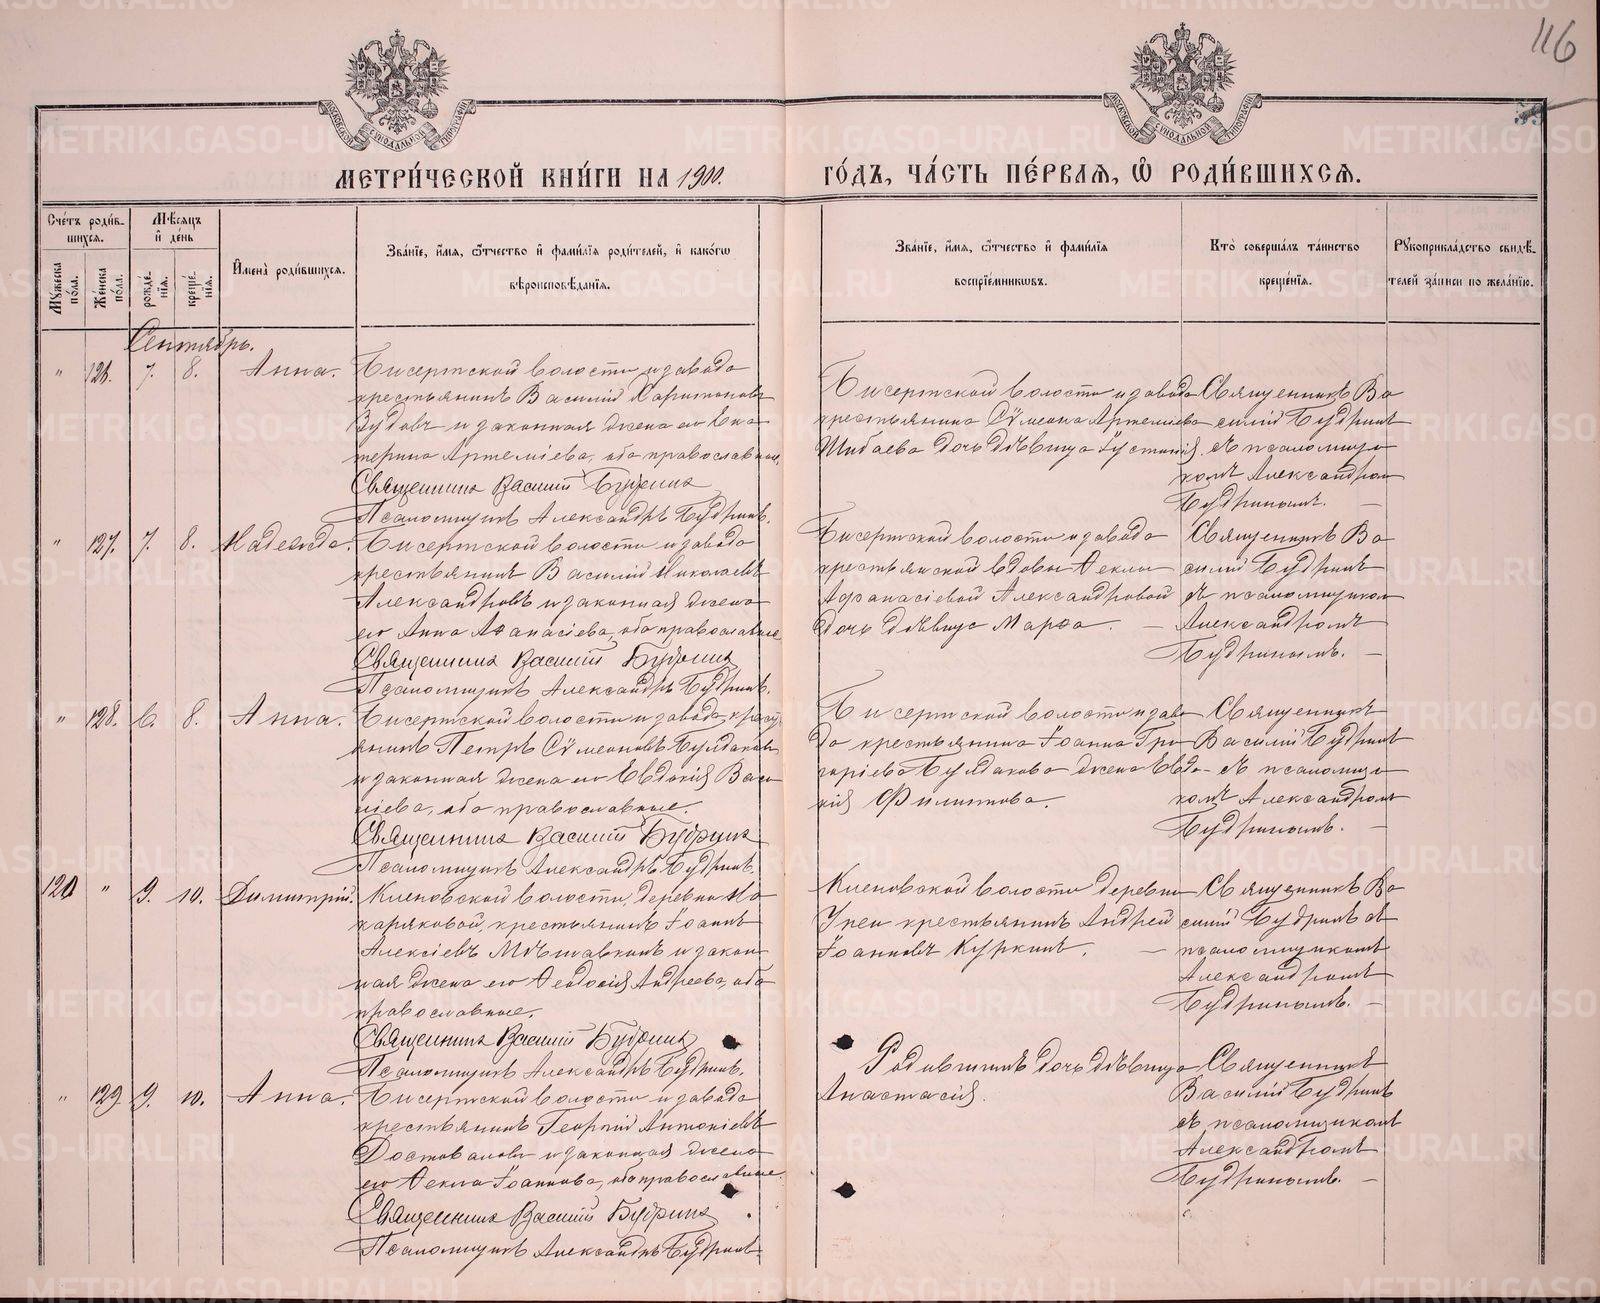 116
МЕТРИ́ЧЕСКОЙ КНИ́ГИ НА 1900.
ГО́ДЪ, ЧА́СТЬ ПЕ́РВАѦ, Ѡ҆ РОДИ́ВШИХСѦ.
Сче́тъ роди́в-
шихсѧ.
Мꙋ́жеска по́ла.
Же́нска по́ла.
Мѣ́сѧцъ
и҆ де́нь
рожде́-
нїѧ.
креще́-
нїѧ.
И҆мена̀ роди́вшихсѧ.
Зва́нїе, и҆́мѧ, ѻ҆́тчество и҆ фами́лїѧ роди́телей, и҆ како́гѡ
вѣроисповѣ́данїѧ.
Зва́нїе, и҆́мѧ, ѻ҆́тчество и҆ фами́лїѧ
воспрїе́мникѡвъ.
Кто̀ соверша́лъ та́инство
креще́нїѧ.
Рꙋкоприкла́дство свидѣ́-
телей за́писи по жела́нїю.
Сентябрь.
" 126. 7. 8. Анна.
Бисертской волости и завода
крестьянинъ Василій Харитоновъ
Зудовъ и законная жена его Ека-
терина Артеміева, оба православные.
Священникъ Василій Будринъ
Псаломщикъ Александръ Будринъ.
Бисертской волости и завода
крестьянина Сѵмеона Артеміева
Шибаева дочь дѣвица Іустинія.
Священникъ Ва-
силій Будринъ
съ псаломщи-
комъ Александром
Будринымъ.
" 127. 7. 8. Надежда.
Бисертской волости и завода
крестьянинъ Василій Николаевъ
Александровъ и законная жена
его Анна Аѳанасіева, оба православные
Священникъ Василій Будринъ
Псаломщикъ Александръ Будринъ.
Бисертской волости и завода
крестьянской вдовы Ѳеклы
Аѳанасіевой Александровой
дочь дѣвица Марѳа.
Священникъ Ва-
силій Будринъ
съ псаломщиком
Александромъ
Будринымъ.
" 128. 6. 8. Анна.
Бисертской волости и завода, крест-
янинъ Петръ Сѵмеоновъ Булдаковъ
и законная жена его Евдокія Васи-
ліева, оба православные.
Священникъ Василій Будринъ
Псаломщикъ Александръ Будринъ.
Бисертской волости и заво-
да крестьянина Іоанна Гри-
горіева Булдакова жена Евдо-
кія Филиппова.
Священникъ
Василій Будринъ
съ псаломщи-
комъ Александромъ
Будринымъ.
120 " 9. 10. Димитрій.
Кленовской волости, деревни Ма-
каряковой, крестьянинъ Іоаннъ
Алексіевъ Мѣшавкинъ и закон-
ная жена его Ѳеодосія Андреева, оба
православные.
Священникъ Василій Будринъ
Псаломщикъ Александръ Будринъ.
Кленовской волости деревни
Уреи крестьянинъ Андрей
Іоанновъ Куркинъ.
Священникъ Ва-
силій Будринъ съ
псаломщикомъ
Александромъ
Будринымъ.
" 129 9. 10. Анна.
Бисертской волости и завода
крестьянинъ Георгій Антоніевъ
Достоваловъ и законная жена
его Ѳекла Іоаннова, оба православные.
Священникъ Василій Будринъ
Псаломщикъ Александръ Будринъ.
Родившихъ дочь дѣвица
Анастасія.
Священникъ
Василій Будринъ
съ псаломщикомъ
Александромъ
Будринымъ.
METRIKI.GASO-URAL.RU